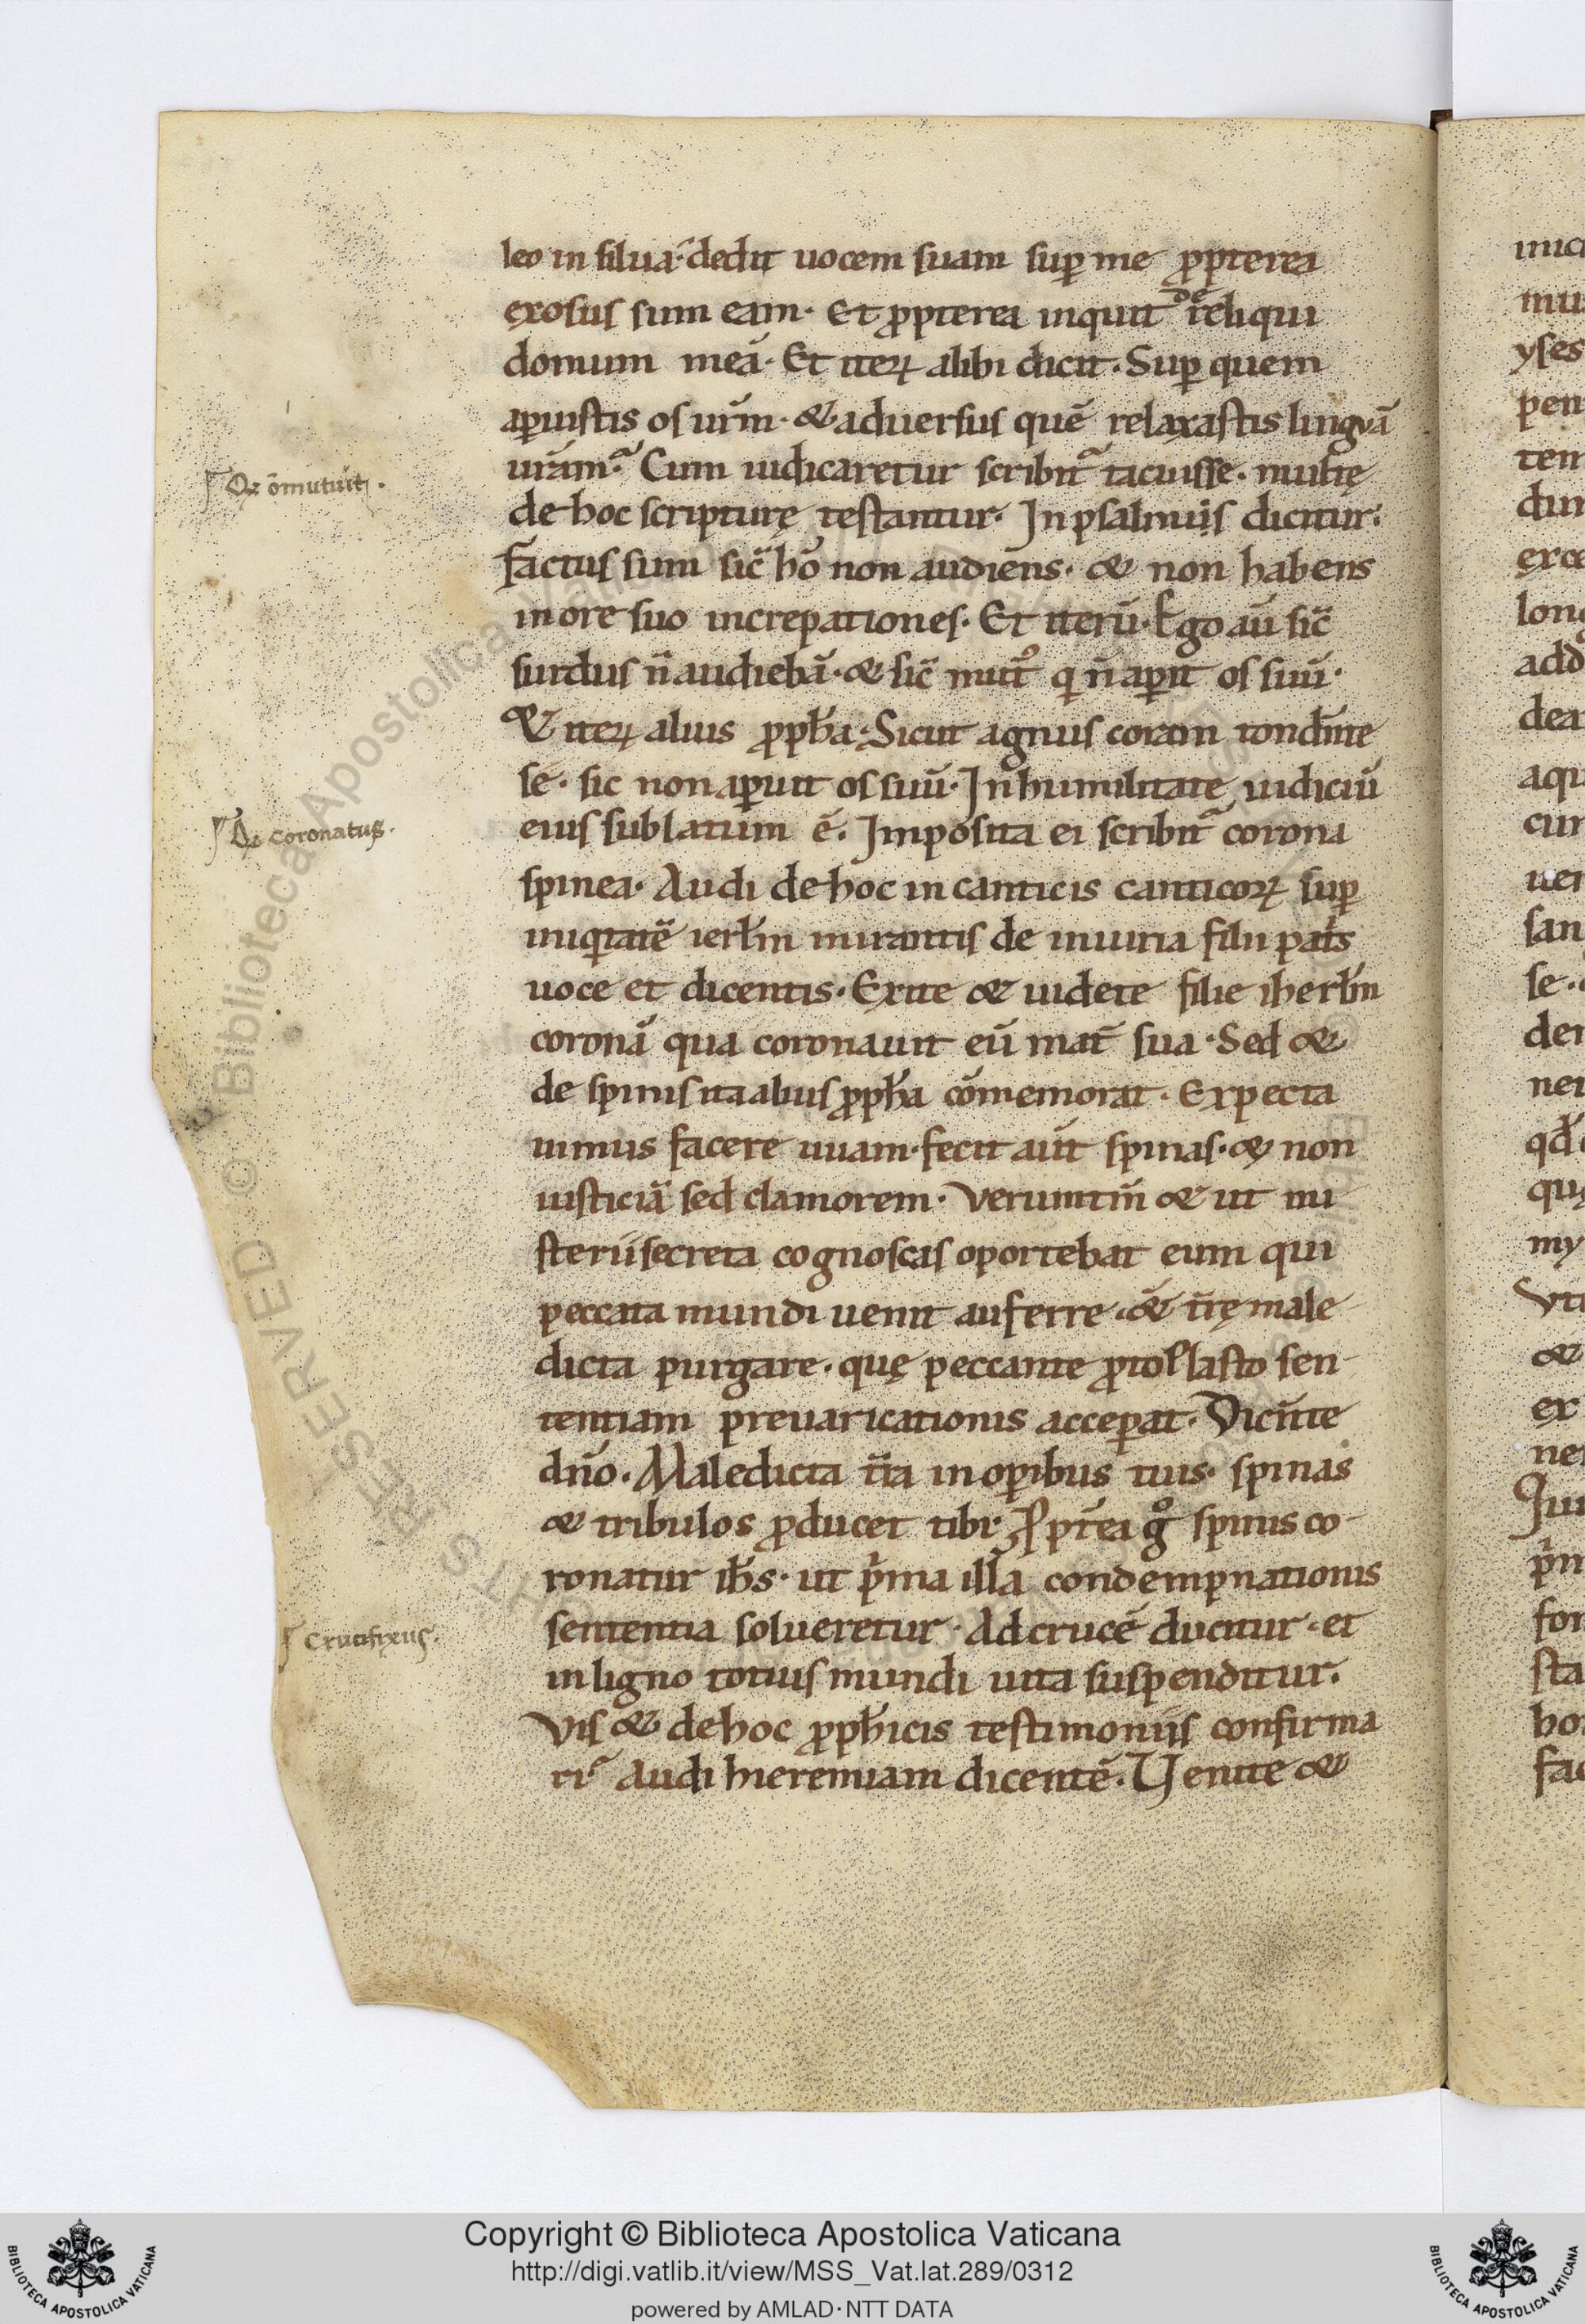 leo in silua· dedit uocem suam sup̱ me ꝓpterea
ęxosus sum eam· Et ꝓpterea inquit dereliqui
domum meā· Et iteꝝ alibi dicit· Sup̱ quem
ap̱uistis os ur̄m· & aduersus quē relaxastis linguā
urām· Cum iudicaretur scribit᷑ tacuisse· multę
de hoc scripturę testantur· In psalmis dicitur·
factus sum sic̄ hō non audiens· & non habens
in ore suo increpationes· Et iterū· Ego aū sic̄
surdus n̄ audiebā· & sic̄ mutꝰ q n̄ ap̱it os suū·
& iteꝝ alius ꝓph̄a· Sicut agnus coram tond̄nte
se· sic non ap̱uit os suū· In humilitate iudiciū
eius sublatum ē· Imposita ei scribit᷑ corona
spinea· Audi de hoc in canticis canticoꝝ sup̱
iniq̄tatē ierl̄m mirantis de iniuria filii pat̄s
uoce et dicentis· Exite & uidete filie iherl̄m
coronā qua coronauit eū mat̄ sua· Sed &
de spinis ita alius ꝓph̄a cōmemorat· Expecta
uimus facere uuam· fecit aūt spinas· & non
iusticiā sed clamorem· Verumtm̄ & ut mi
sterii secreta cognoscas oportebat eum qui
peccata mundi uenit auferre· & tr̄ę male
dicta purgare· quę peccante ꝓtoplasto sen
tentiam preuaricationis accep̱at· Dicn̄te
dn̄o· Maledicta tr̄a in op̱ibus tuis· spinas
& tribulos ꝓducet tibi· Ꝓpt̄ea gͦ spinis co
ronatur ih̄s· ut p̄ma illa condempnationis
sententia solueretur· Ad crucē ducitur· et
in ligno totius mundi uita suspenditur·
Vis & de hoc ꝓph̄icis testimoniis confirma
ri? Audi hieremiam dicentē· Uenite &
Qe ōmutuit·
Qe coronatus·
crucifixus·
Copyright © Biblioteca Apostolica Vaticana
http://digi.vatlib.it/view/MSS_Vat.lat.289/0312
powered by AMLAD·NTT DATA